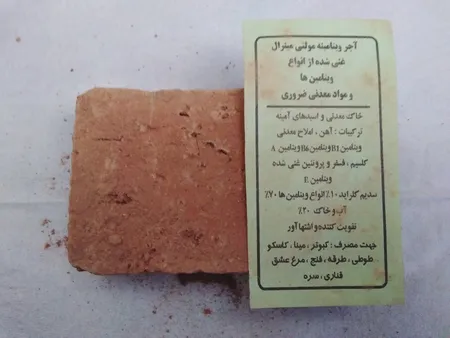 آجر ویتامینه مولتی مینرال
غنی شده از انواع
ویتامین ها
و مواد معدنی ضروری
خاک معدنی و اسیدهای آمینه
ترکیبات : آهن ، املاح معدنی
ویتامین B1ویتامین B6ویتامین A
کلسیم ، فسفر و پروتئین غنی شده
ویتامین E
سدیم کلراید ۱۰٪ انواع ویتامین ها ۷۰٪
آب و خاک ۲۰٪
تقویت کننده و اشتها آور
جهت مصرف : کبوتر ، مینا ، کاسکو
طوطی ، طرقه ، فنچ ، مرغ عشق
قناری ، سره